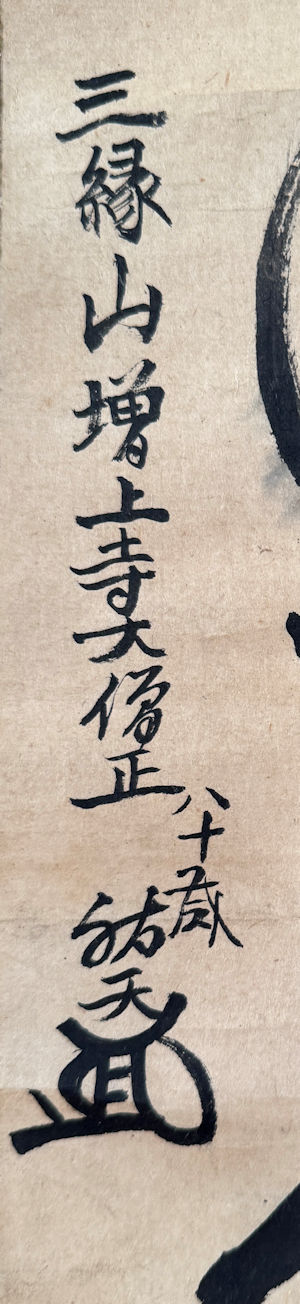 三縁山増上寺大僧正
八十歳
祐天